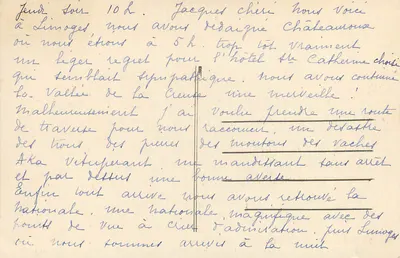 Jeudi soir 10 h. Jacques chéri nous voici
à Limoges, nous avons dédaigné Châteauroux
où nous étions à 5 h trop tôt vraiment
un léger regret pour l'hôtel Ste Catherine choisi
qui semblait sympathique. nous avons continué
La Vallée de la Creuse une merveille !
Malheureusement j'ai voulu prendre une route
de traverse pour nous raccourcir, un désastre
des trous des pierres des moutons des vaches
Aka vitupérant me maudissant sans arrêt
et par dessus une bonne averse.
Enfin tout arrive nous avons retrouvé la
Nationale, une nationale magnifique avec des
points de vue à crier d'admiration, puis Limoges
où nous sommes arrivés à la nuit